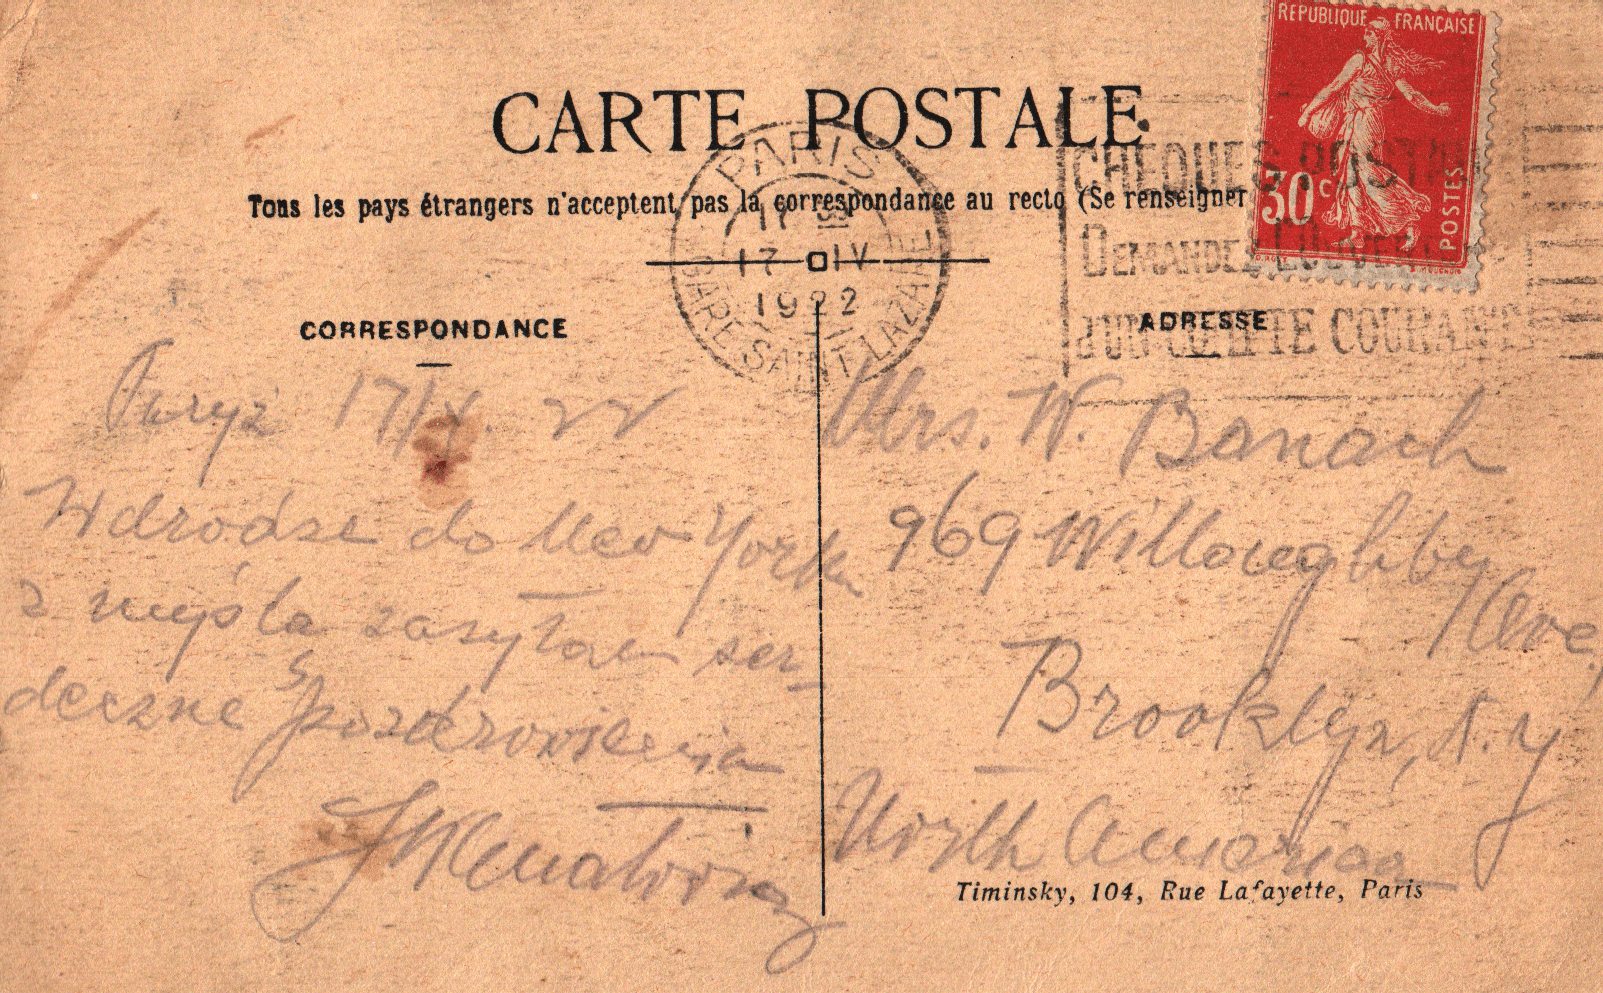 REPUBLIQUE FRANÇAISE
30 c
POSTES
CARTE POSTALE
Tous les pays étrangers n'acceptent pas la correspondance au recto (Se renseigner
PARIS
17 IV
1922
GARE SAINT-LAZARE
CHEQUES POSTAUX
DEMANDEZ L'OUVERTURE
D'UN COMPTE COURANT
CORRESPONDANCE
Paryż 17/ . 22
W drodze do New York
z myślą zasyłam ser-
deczne pozdrowienia
ADRESSE
Mrs. W. Banach
969 Willoughby
Ave,
Brooklyn, N. Y
North America
Timinsky, 104, Rue Lafayette, Paris